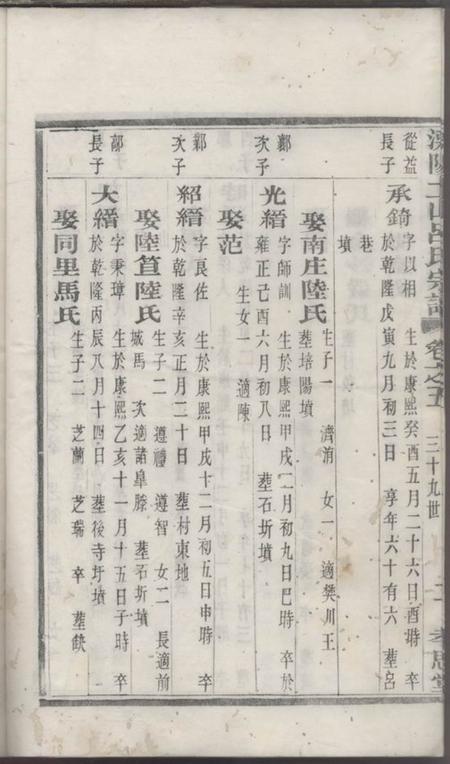 溧陽土山呂氏宗譜 卷之五 三十九世 二 孝思堂
從益長子
承錡 字以相 生於康熙癸酉五月二十六日酉時 卒
於乾隆戊寅九月初三日 享年六十有六 葬呂
巷
墳
娶南庄陸氏 生子一 濟淯 女一 適樊川王
葬培陽墳
鄴次子
光縉 字師訓 生於康熙甲戌二月初九日巳時 卒於
雍正己酉六月初八日 葬石圻墳
娶范 生女一 適陳
鄴次子
紹縉 字良佐 生於康熙甲戌十二月初五日申時 卒
於乾隆辛亥正月二十日 葬村東地
娶陸笪陸氏 生子二 遵禮 遵智 女二 長適前
城馬 次適諸皐滕 葬石圻墳
鄗長子
大縉 字秉璋 生於康熙乙亥十一月十五日子時 卒
於乾隆丙辰八月十四日 葬後寺圩墳
娶同里馬氏 生子二 芝蘭 芝瑞 卒 葬缺